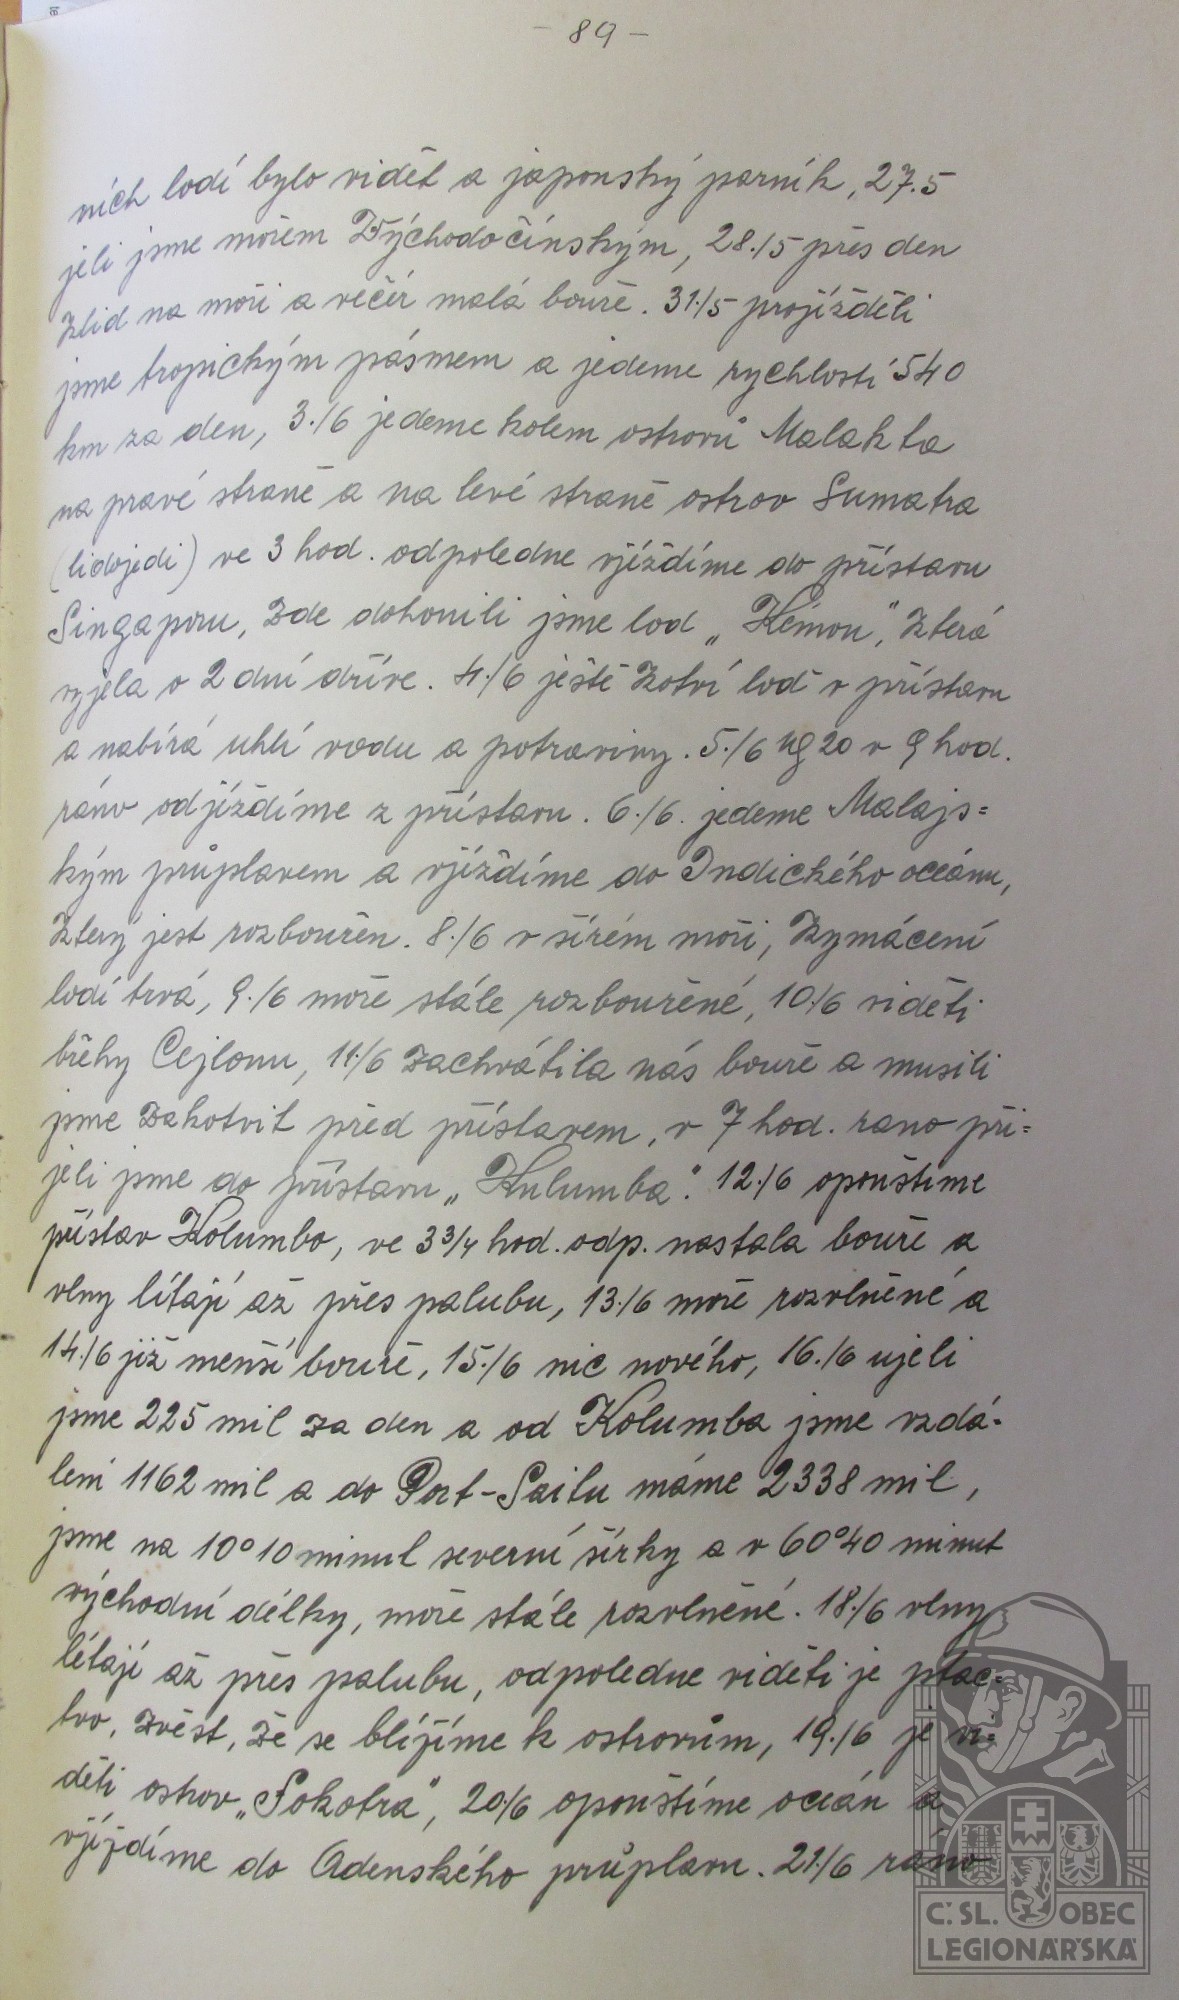 - 89 -
ních lodí bylo vidět a japonský parník, 27.5
jeli jsme mořem Východočínským, 28./5 přes den
klid na moři a večer malá bouře. 31./5 projížděli
jsme tropickým pásmem a jedeme rychlostí 540
km za den, 3./6 jedeme kolem ostrovů Malakta
na pravé straně a na levé straně ostrov Sumatra
(lidojedi) ve 3 hod. odpoledne vjíždíme do přístavu
Singaporu, zde dohonili jsme lod „Kémon", která
vyjela o 2 dní dříve. 4./6 ještě kotví loď v přístavu
a nabírá uhlí vodu a potraviny. 5./6 1920 v 9 hod.
ráno odjíždíme z přístavu. 6./6. jedeme Malajs=
kým průplavem a vjíždíme do Indického oceánu,
který jest rozbouřen. 8./6 v šírém moři, kymácení
lodi trvá, 9./6 moře stále rozbouřené, 10./6 viděti
břehy Cejlonu, 11./6 zachvátila nás bouře a musili
jsme zakotvit před přístavem, v 7 hod. rano při=
jeli jsme do přístavu „Kulumba". 12./6 opouštíme
přístav Kolumbo, ve 3 3/4 hod. odp. nastala bouře a
vlny lítají až přes palubu, 13./6 moře rozvlněné a
14./6 již menší bouře, 15./6 nic nového, 16./6 ujeli
jsme 225 mil za den a od Kolumba jsme vzdá-
lení 1162 mil a do Port-Saitu máme 2338 mil,
jsme na 10°10 minut severní šířky a v 60°40 minut
východní délky, moře stále rozvlněné. 18./6 vlny
lítají až přes palubu, odpoledne viděti je ptac=
tvo, zvěst, že se blížíme k ostrovům, 19./6 je vi=
děti ostrov „Sokotra", 20./6 opouštíme oceán a
vjíždíme do Adenského průplavu. 21./6 ráno
Č. SL. OBEC
LEGIONÁŘSKÁ